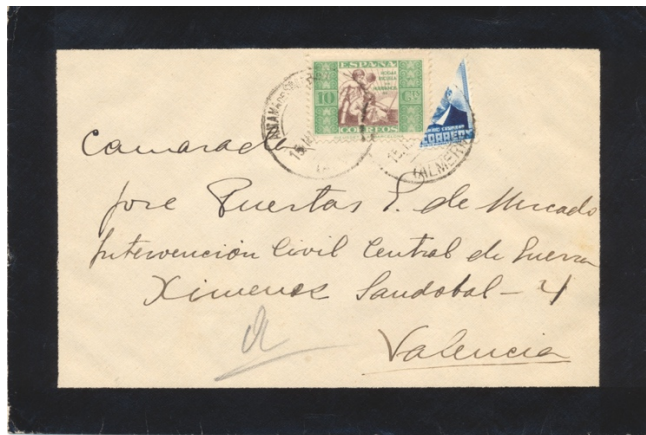 ESPAÑA
10 Cts
CORREOS
CORREOS
15
15
ALMERIA
Camarada
Jose Puertas P. de Mercado
Intervención Civil Central de Guerra
Ximenez Sandobal - 4
Valencia